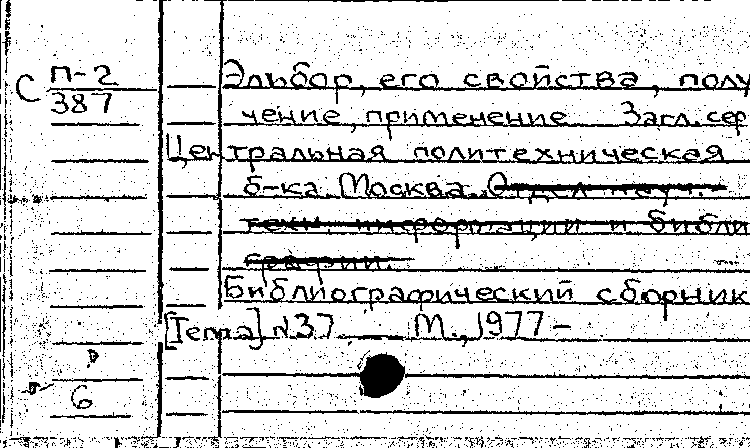 С П-2 Эльбор, его свойства, полу
387 чение, применение Загл. сер
Центральная политехническая
б-ка. Москва. Отдел науч.
техн. информации и библи
графии.
Библиографический сборник
[Тема] №37. М., 1977-
6